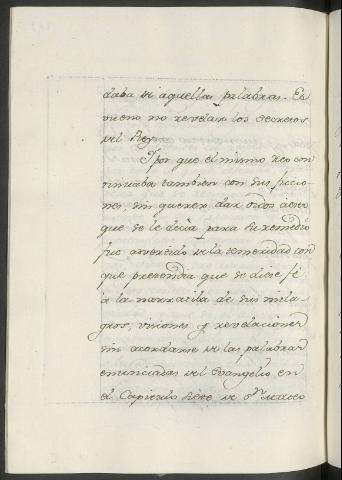 daba de aquellas palabras. Es
bueno no revelar los secretos
del Rey.
Y por que el mismo reo con
tinuaba tambien con sus ficcio-
nes, sin querer dar oidos a lo
que se le decia para su remedio
fue advertido de la temeridad con
que pretendia que se diese fé
à la narratiba de sus mila-
gros, visiones y revelaciones
sin acordarse de las palabras
enunciadas del Evangelio en
el Capitulo siete de Sn. Mateo